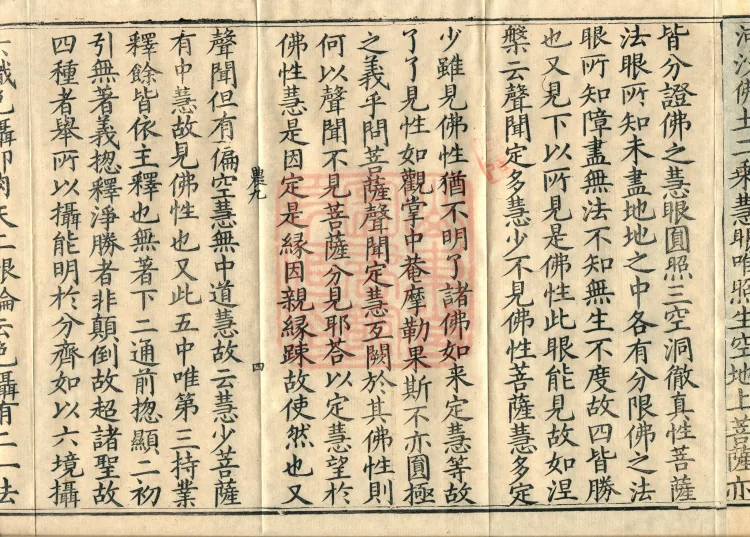 河沙佛土二乘慧眼唯照生空地上菩薩亦
皆分證佛之慧眼圓照三空洞徹真性菩薩
法眼所知未盡地地之中各有分限佛之法
眼所知障盡無法不知無生不度故四皆勝
也又見下以所見是佛性此眼能見故如涅
槃云聲聞定多慧少不見佛性菩薩慧多定
少雖見佛性猶不明了諸佛如来定慧等故
了了見性如觀掌中菴摩勒果斯不亦圓極
之義乎問菩薩聲聞定慧互闕於其佛性則
何以聲聞不見菩薩分見耶荅以定慧望於
佛性慧是因定是緣因親緣踈故使然也又
農九 四
聲聞但有偏空慧無中道慧故云慧少菩薩
有中慧故見佛性也又此五中唯第三持業
釋餘皆依主釋也無著下二通前揔顯二初
引無著義揔釋淨勝者非顛倒故超諸聖故
四種者舉所以攝能明於分齊如以六境攝
六識色攝即肉天二眼論云色攝有二一法